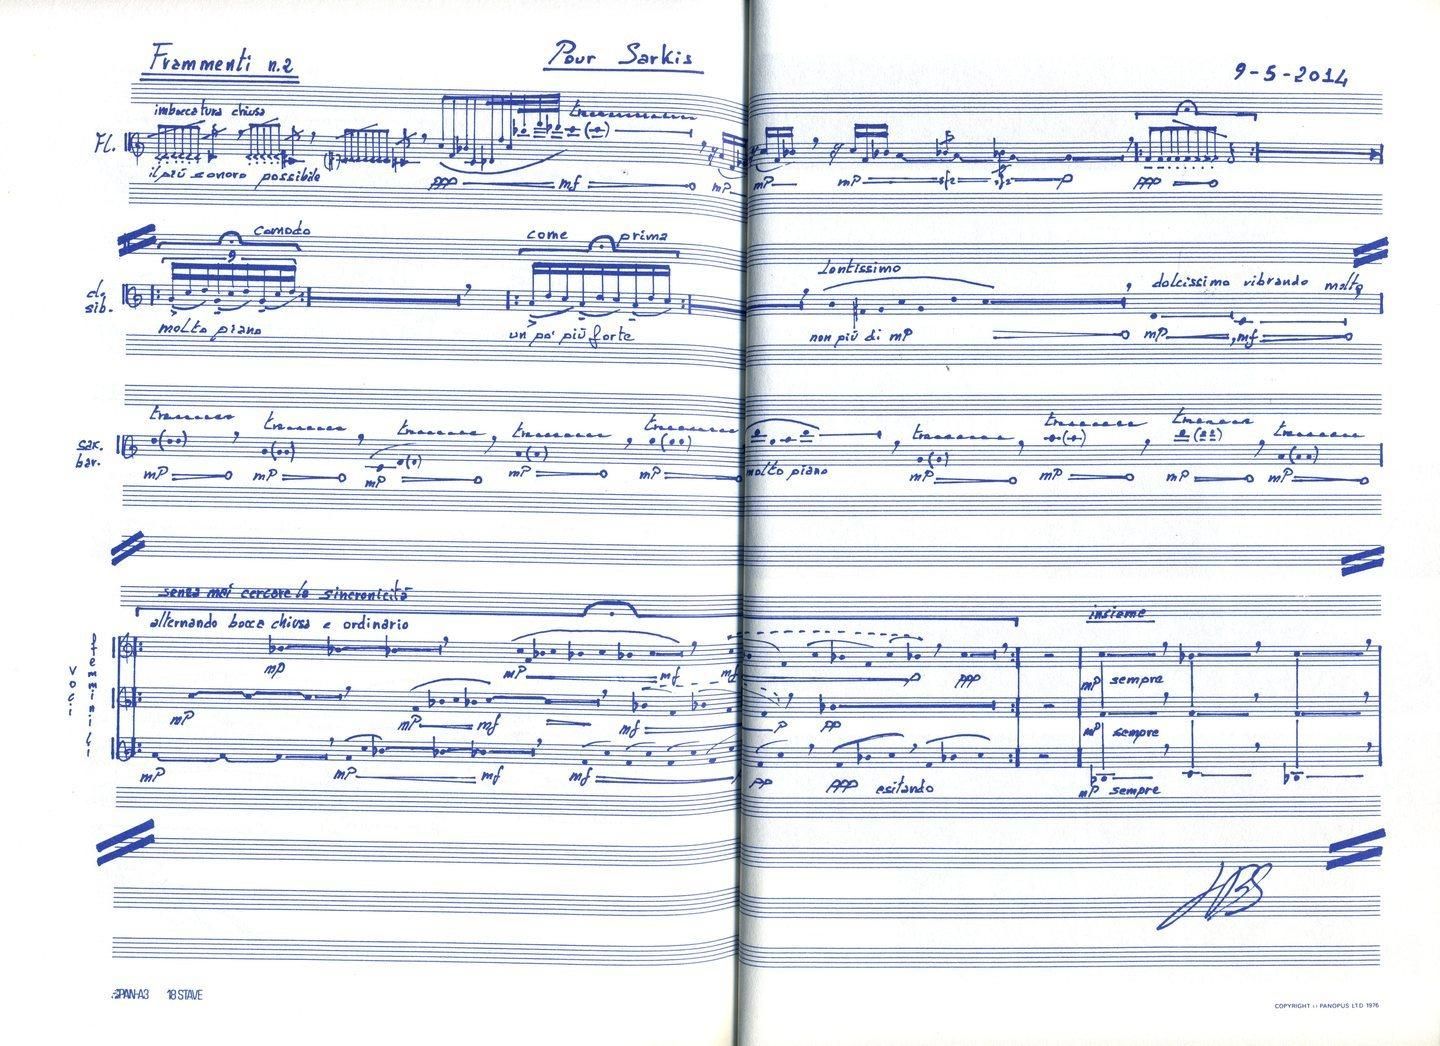 Frammenti n.2
Pour Sarkis
9-5-2014
imboccatura chiusa
Fl.
il più sonoro possibile
ppp mf mP mP mP sfz sfz p ppp
comodo
9
come prima
Lentissimo
dolcissimo vibrando molto
cl. sib.
molto piano
un po' più forte
non più di mP
mP mf
tr tr tr tr tr tr tr tr tr
sax. bar.
mP mP mP mP mP molto piano mP mP mP mP
senza mai cercare la sincronicità
alternando bocca chiusa e ordinario
insieme
voci femminili
mP mP mf mf p ppp mP sempre
mP mP mf mf p pp mP sempre
mP mP mf mf pp ppp esitando mP sempre
PAN-A3 18 STAVE
COPYRIGHT PANOPUS LTD 1976